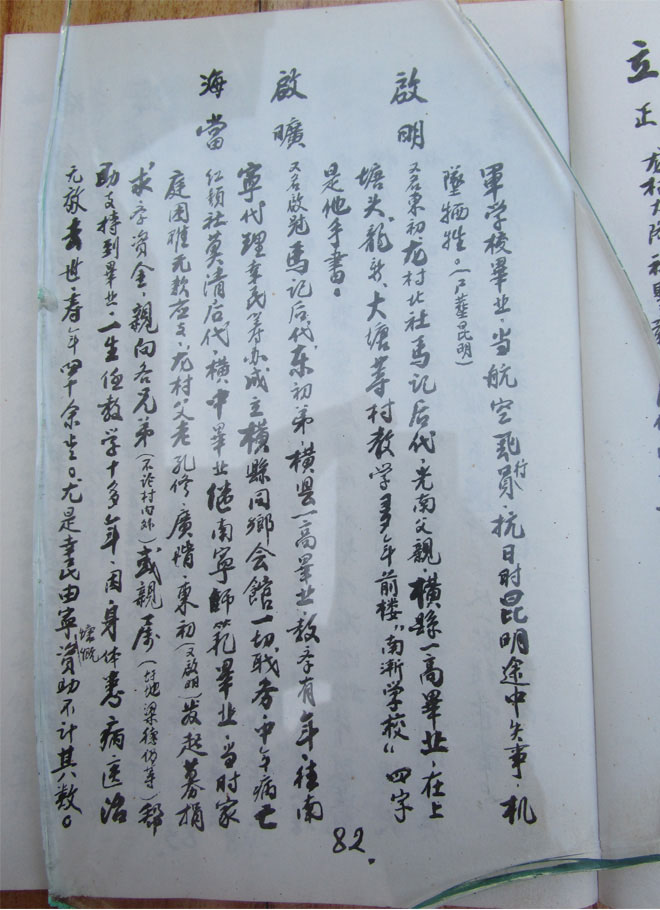 立正
軍学校畢业、当航空飛行員、抗日时昆明途中失事、机
墜牺牲。(尸葬昆明)
啟明
又名東初、龙村北社馬记后代、光南父親、橫縣一高畢业、在上
塘头、龍新、大塘等村教学多年前楼"南漸学校"四字
是他手書。
啟曠
又名啟冠、馬记后代、东初弟、橫县一高畢业、教学有年、往南
寧代理幸民筹办成立橫縣同鄉会館一切职务、中年病亡
海當
红頭社莫清后代、橫中畢业继南寧師范畢业、当时家
庭困难无款、龙村父老孔修、廣階、東初(又啟明)发起募捐
求学資金、親向各兄弟(不论村内外)或親房(村地梁德仍等)帮
助支持到畢业、一生任教学十多年、因身体患病医治
无效去世、寿年四十余岁。尤是幸民由寧慷慨資助不计其数。
82.